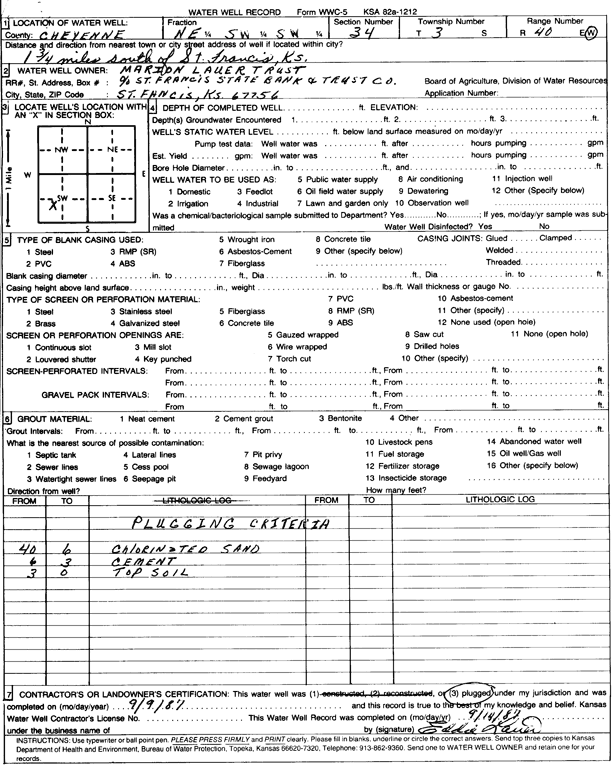 WATER WELL RECORD Form WWC-5 KSA 82a-1212
1 LOCATION OF WATER WELL: Fraction Section Number Township Number Range Number
County: CHEYENNE NE ¼ SW ¼ SW ¼ 34 T 3 S R 40 E/W
Distance and direction from nearest town or city street address of well if located within city?
1 3/4 miles south of St. Francis, Ks.
2 WATER WELL OWNER: MARION LAUER TRUST
RR#, St. Address, Box # : % ST. FRANCIS STATE BANK & TRUST CO. Board of Agriculture, Division of Water Resources
City, State, ZIP Code : ST. FANCIS, KS. 67756 Application Number:
3 LOCATE WELL'S LOCATION WITH AN "X" IN SECTION BOX:
N
NW NE
W E
SW SE
X
S
1 Mile
4 DEPTH OF COMPLETED WELL ft. ELEVATION:
Depth(s) Groundwater Encountered 1. ft. 2. ft. 3. ft.
WELL'S STATIC WATER LEVEL ft. below land surface measured on mo/day/yr
Pump test data: Well water was ft. after hours pumping gpm
Est. Yield gpm: Well water was ft. after hours pumping gpm
Bore Hole Diameter in. to ft., and in. to ft.
WELL WATER TO BE USED AS: 5 Public water supply 8 Air conditioning 11 Injection well
1 Domestic 3 Feedlot 6 Oil field water supply 9 Dewatering 12 Other (Specify below)
2 Irrigation 4 Industrial 7 Lawn and garden only 10 Observation well
Was a chemical/bacteriological sample submitted to Department? Yes No ; If yes, mo/day/yr sample was submitted
Water Well Disinfected? Yes No
5 TYPE OF BLANK CASING USED: 5 Wrought iron 8 Concrete tile CASING JOINTS: Glued Clamped
1 Steel 3 RMP (SR) 6 Asbestos-Cement 9 Other (specify below) Welded
2 PVC 4 ABS 7 Fiberglass Threaded
Blank casing diameter in. to ft., Dia in. to ft., Dia in. to ft.
Casing height above land surface in., weight lbs./ft. Wall thickness or gauge No.
TYPE OF SCREEN OR PERFORATION MATERIAL: 7 PVC 10 Asbestos-cement
1 Steel 3 Stainless steel 5 Fiberglass 8 RMP (SR) 11 Other (specify)
2 Brass 4 Galvanized steel 6 Concrete tile 9 ABS 12 None used (open hole)
SCREEN OR PERFORATION OPENINGS ARE: 5 Gauzed wrapped 8 Saw cut 11 None (open hole)
1 Continuous slot 3 Mill slot 6 Wire wrapped 9 Drilled holes
2 Louvered shutter 4 Key punched 7 Torch cut 10 Other (specify)
SCREEN-PERFORATED INTERVALS: From ft. to ft., From ft. to ft.
From ft. to ft., From ft. to ft.
GRAVEL PACK INTERVALS: From ft. to ft., From ft. to ft.
From ft. to ft., From ft. to ft.
6 GROUT MATERIAL: 1 Neat cement 2 Cement grout 3 Bentonite 4 Other
Grout Intervals: From ft. to ft., From ft. to ft., From ft. to ft.
What is the nearest source of possible contamination: 10 Livestock pens 14 Abandoned water well
1 Septic tank 4 Lateral lines 7 Pit privy 11 Fuel storage 15 Oil well/Gas well
2 Sewer lines 5 Cess pool 8 Sewage lagoon 12 Fertilizer storage 16 Other (specify below)
3 Watertight sewer lines 6 Seepage pit 9 Feedyard 13 Insecticide storage
Direction from well? How many feet?
FROM TO LITHOLOGIC LOG FROM TO LITHOLOGIC LOG
PLUGGING CRITERIA
40 6 CHLORINATED SAND
6 3 CEMENT
3 0 TOP SOIL
7 CONTRACTOR'S OR LANDOWNER'S CERTIFICATION: This water well was (1) constructed, (2) reconstructed, or (3) plugged under my jurisdiction and was
completed on (mo/day/year) 9/9/87 and this record is true to the best of my knowledge and belief. Kansas
Water Well Contractor's License No. This Water Well Record was completed on (mo/day/yr) 9/14/87
under the business name of by (signature) Eddie Lauer
INSTRUCTIONS: Use typewriter or ball point pen. PLEASE PRESS FIRMLY and PRINT clearly. Please fill in blanks, underline or circle the correct answers. Send top three copies to Kansas
Department of Health and Environment, Bureau of Water Protection, Topeka, Kansas 66620-7320, Telephone: 913-862-9360. Send one to WATER WELL OWNER and retain one for your
records.